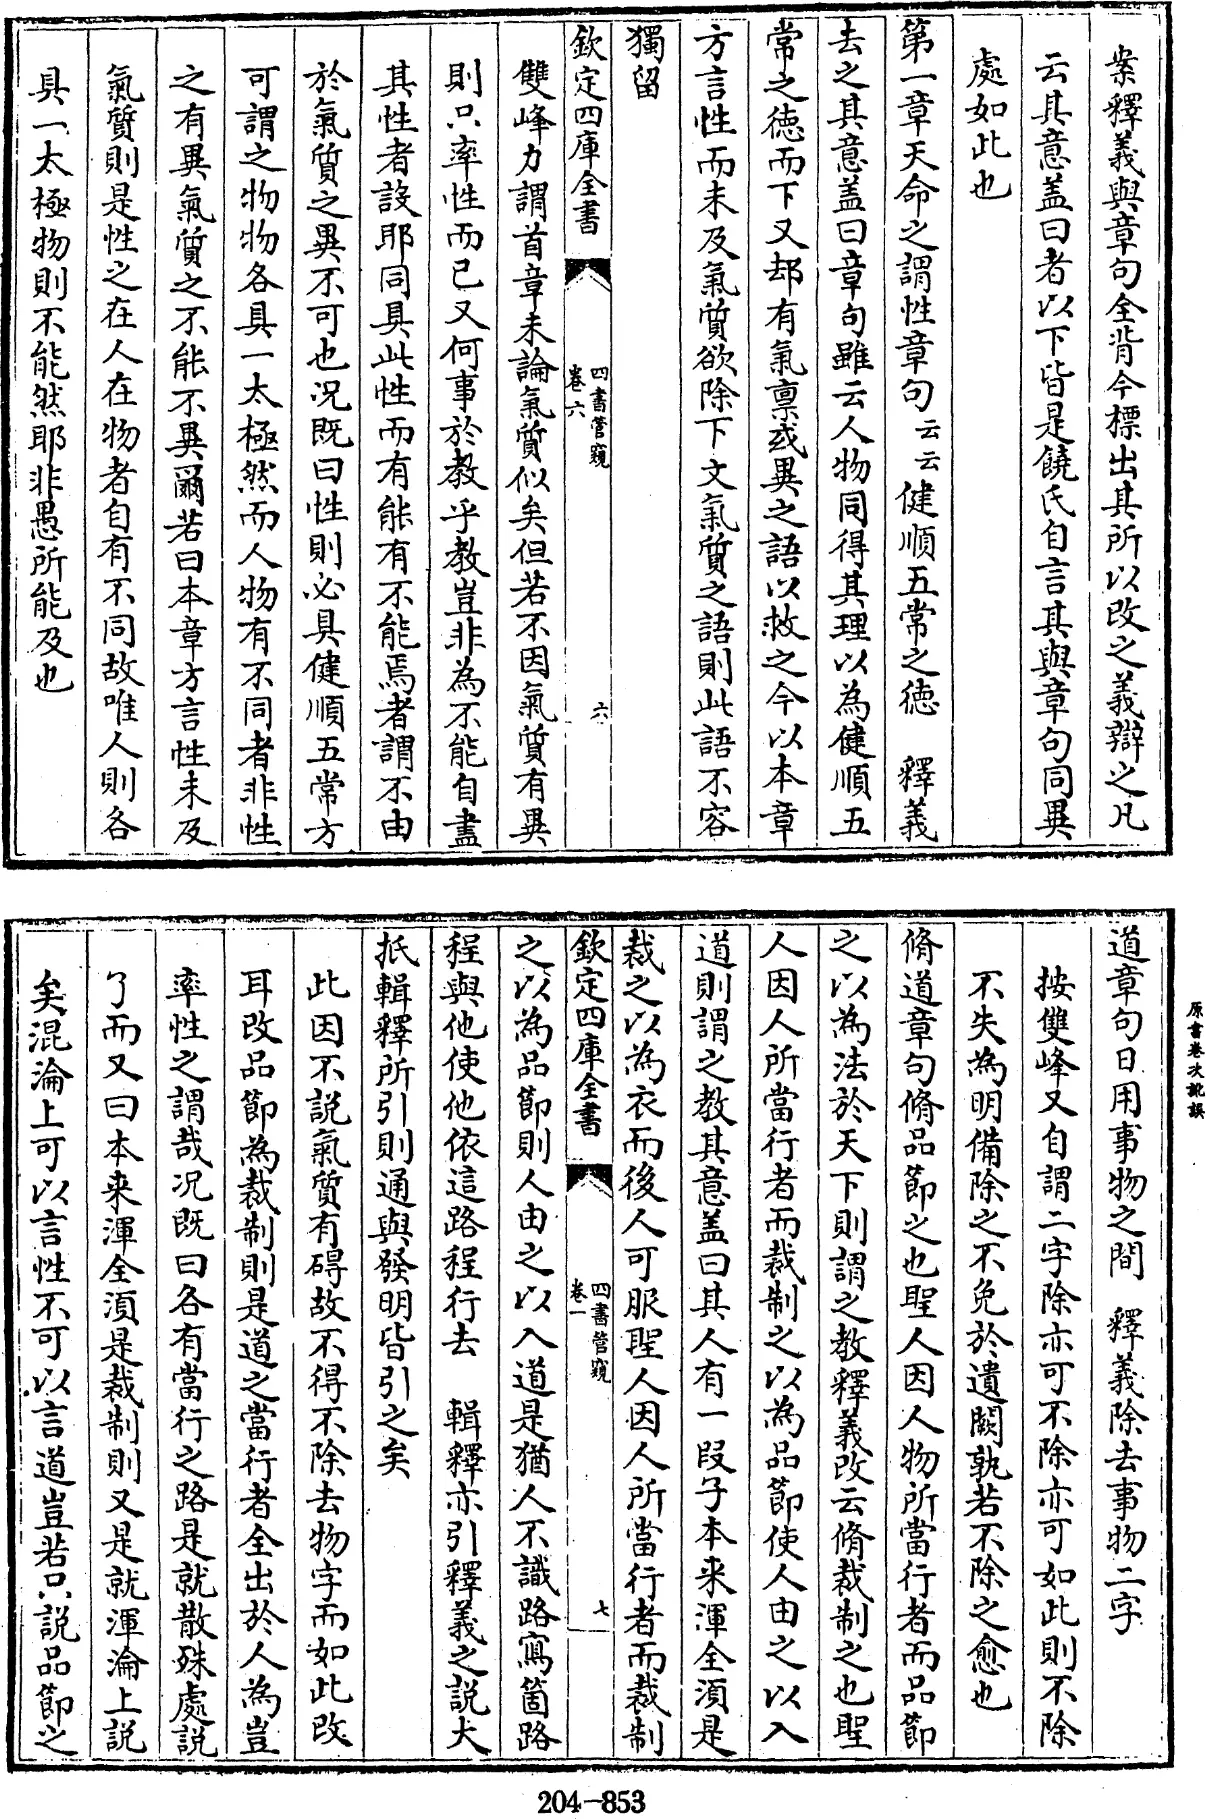 案釋義與章句全背今標出其所以改之義辯之凡
云其意盖曰者以下皆是饒氏自言其與章句同異
處如此也
第一章天命之謂性章句云云健順五常之德　釋義
去之其意盖曰章句雖云人物同得其理以為健順五
常之德而下又却有氣禀或異之語以救之今以本章
方言性而未及氣質欲除下文氣質之語則此語不容
獨留
欽定四庫全書
四書管窺
卷六
六
雙峰力謂首章未論氣質似矣但若不因氣質有異
則只率性而已又何事於教乎教豈非為不能自盡
其性者設耶同具此性而有能有不能焉者謂不由
於氣質之異不可也况既曰性則必具健順五常方
可謂之物物各具一太極然而人物有不同者非性
之有異氣質之不能不異爾若曰本章方言性未及
氣質則是性之在人在物者自有不同故唯人則各
具一太極物則不能然耶非愚所能及也
原書卷次訛誤
道章句日用事物之間　釋義除去事物二字
按雙峰又自謂二字除亦可不除亦可如此則不除
不失為明備除之不免於遺闕孰若不除之愈也
脩道章句脩品節之也聖人因人物所當行者而品節
之以為法於天下則謂之教釋義改云脩裁制之也聖
人因人所當行者而裁制之以為品節使人由之以入
道則謂之教其意盖曰其人有一段子本来渾全湏是
裁之以為衣而後人可服聖人因人所當行者而裁制
欽定四庫全書
四書管窺
卷一
七
之以為品節則人由之以入道是猶人不識路寫箇路
程與他使他依這路程行去　輯釋亦引釋義之說大
抵輯釋所引則通與發明皆引之矣
此因不說氣質有碍故不得不除去物字而如此改
耳改品節為裁制則是道之當行者全出於人為豈
率性之謂哉况既曰各有當行之路是就散殊處說
了而又曰本来渾全湏是裁制則又是就渾淪上說
矣混淪上可以言性不可以言道豈若只說品節之
204-853